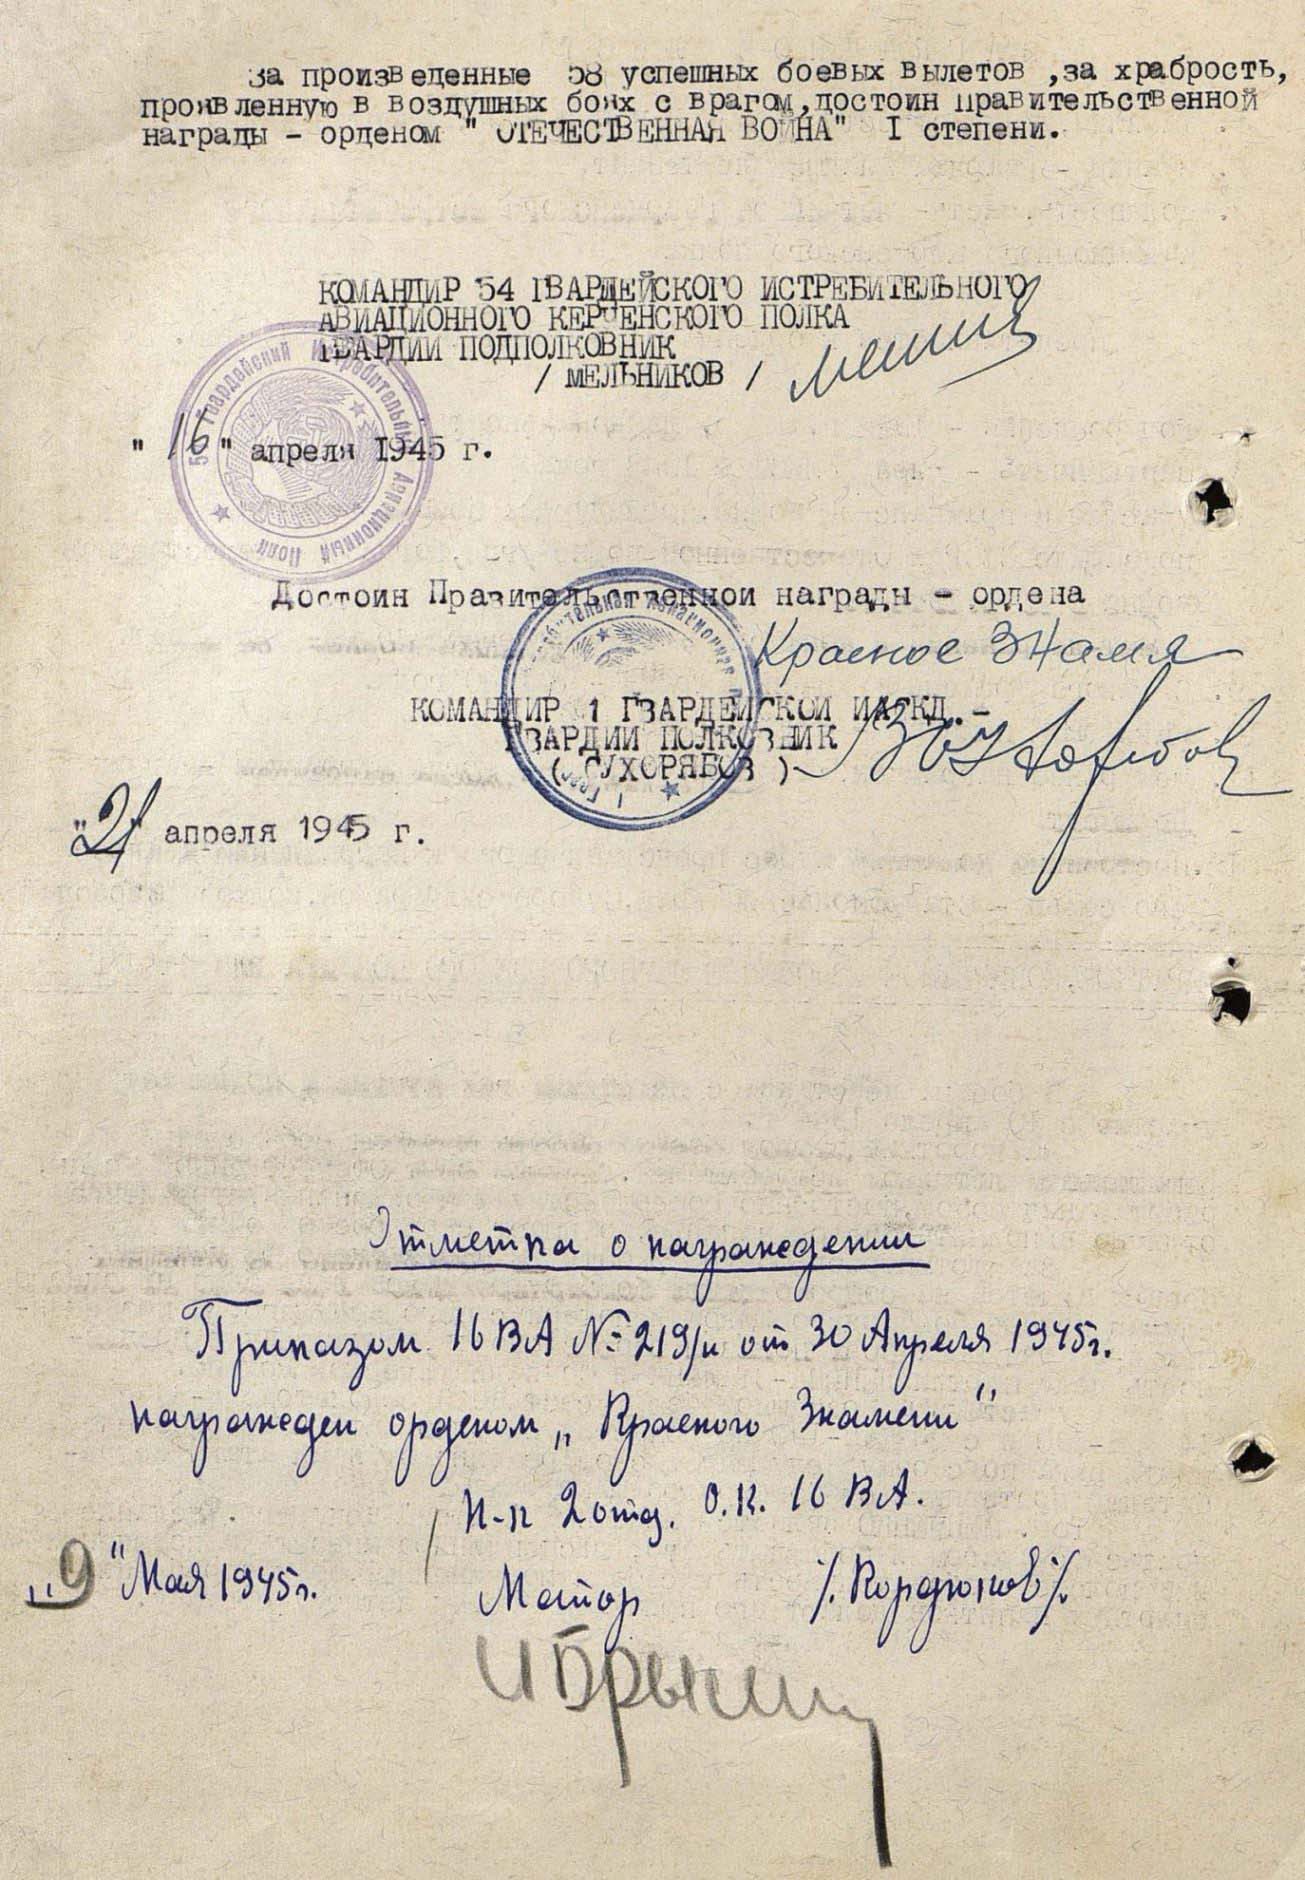 За произведенные 58 успешных боевых вылетов ,за храбрость,
проявленную в воздушных боях с врагом,достоин Правительственной
награды – орденом " ОТЕЧЕСТВЕННАЯ ВОЙНА" I степени.
КОМАНДИР 54 ГВАРДЕЙСКОГО ИСТРЕБИТЕЛЬНОГО
АВИАЦИОННОГО КЕРЧЕНСКОГО ПОЛКА
ГВАРДИИ ПОДПОЛКОВНИК
/ МЕЛЬНИКОВ /
Гвардейский Истребительный Авиационный Полк
" 16 " апреля 1945 г.
Достоин Правительственной награды – ордена
Красное Знамя
КОМАНДИР 1 ГВАРДЕЙСКОЙ ИАСКД.–
ГВАРДИИ ПОЛКОВНИК
( СУХОРЯБОВ )
"21" апреля 1945 г.
Отметка о награждении
Приказом 16 ВА №219/н от 30 Апреля 1945г.
награжден орденом „Красного Знамени"
Н-к 2 отд. О.К. 16 ВА.
„9" Мая 1945г.
Майор /.Кордюков/.